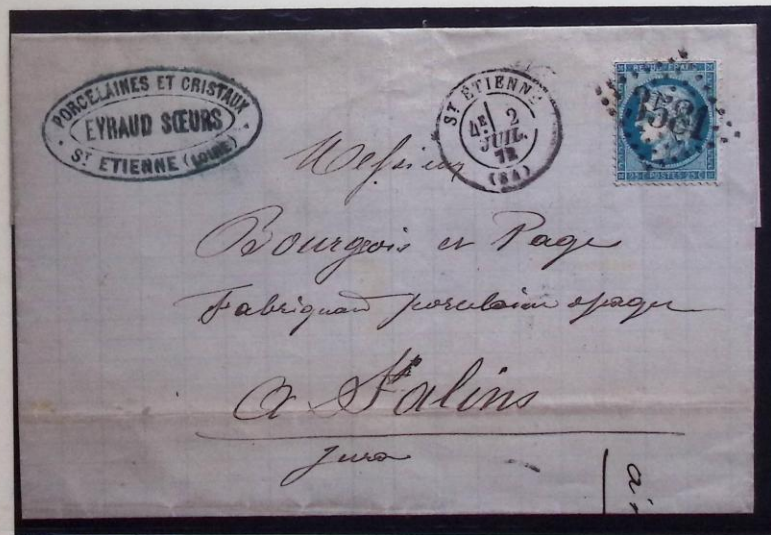 PORCELAINES ET CRISTAUX
EYRAUD SŒURS
• ST ETIENNE (LOIRE) •
ST ETIENNE
4E 2
JUIL.
72
(84)
REPUB FRANC
3581
25 C POSTES 25 C
Messieurs
Bourgois et Page
Fabriquant porcelaine opaque
a Salins
Jura